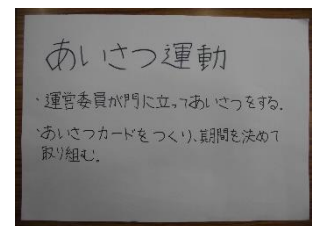 あいさつ運動
・運営委員が門に立ってあいさつをする.
・あいさつカードをつくり、期間を決めて
取り組む.